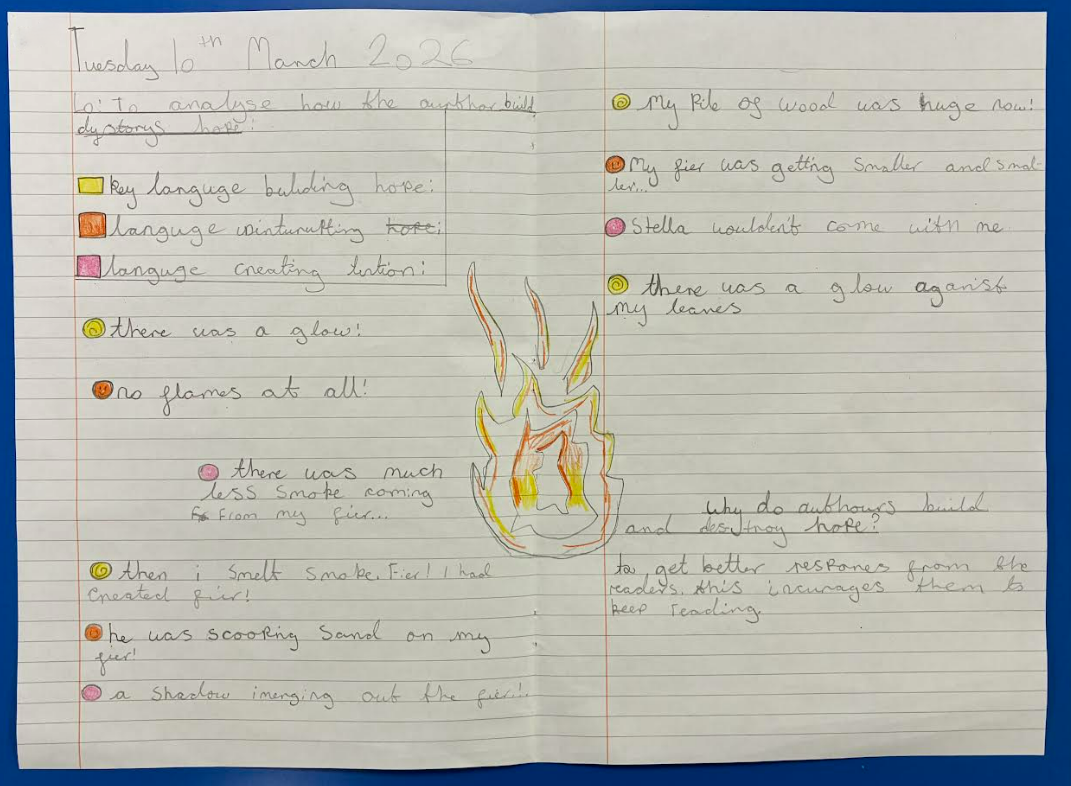 Tuesday 10th March 2026
Lo: To analyse how the aupthor build
dystorys hope:
key languge building hope:
languge winturufting hope:
languge creating tention:
there was a glow!
no flames at all!
there was much
less smoke coming
from my fier...
then i smelt smoke. Fier! I had
created fier!
he was scooping sand on my
fier!
a shadow imerging out the fier!.
My Pile of wood was huge now!
My fier was getting smaller and smal-
ler...
Stella wouldent come with me
there was a glow aganist
my leaves
why do authours build
and desutroy hope?
to get better respones from the
readers. this incurages them to
keep reading.